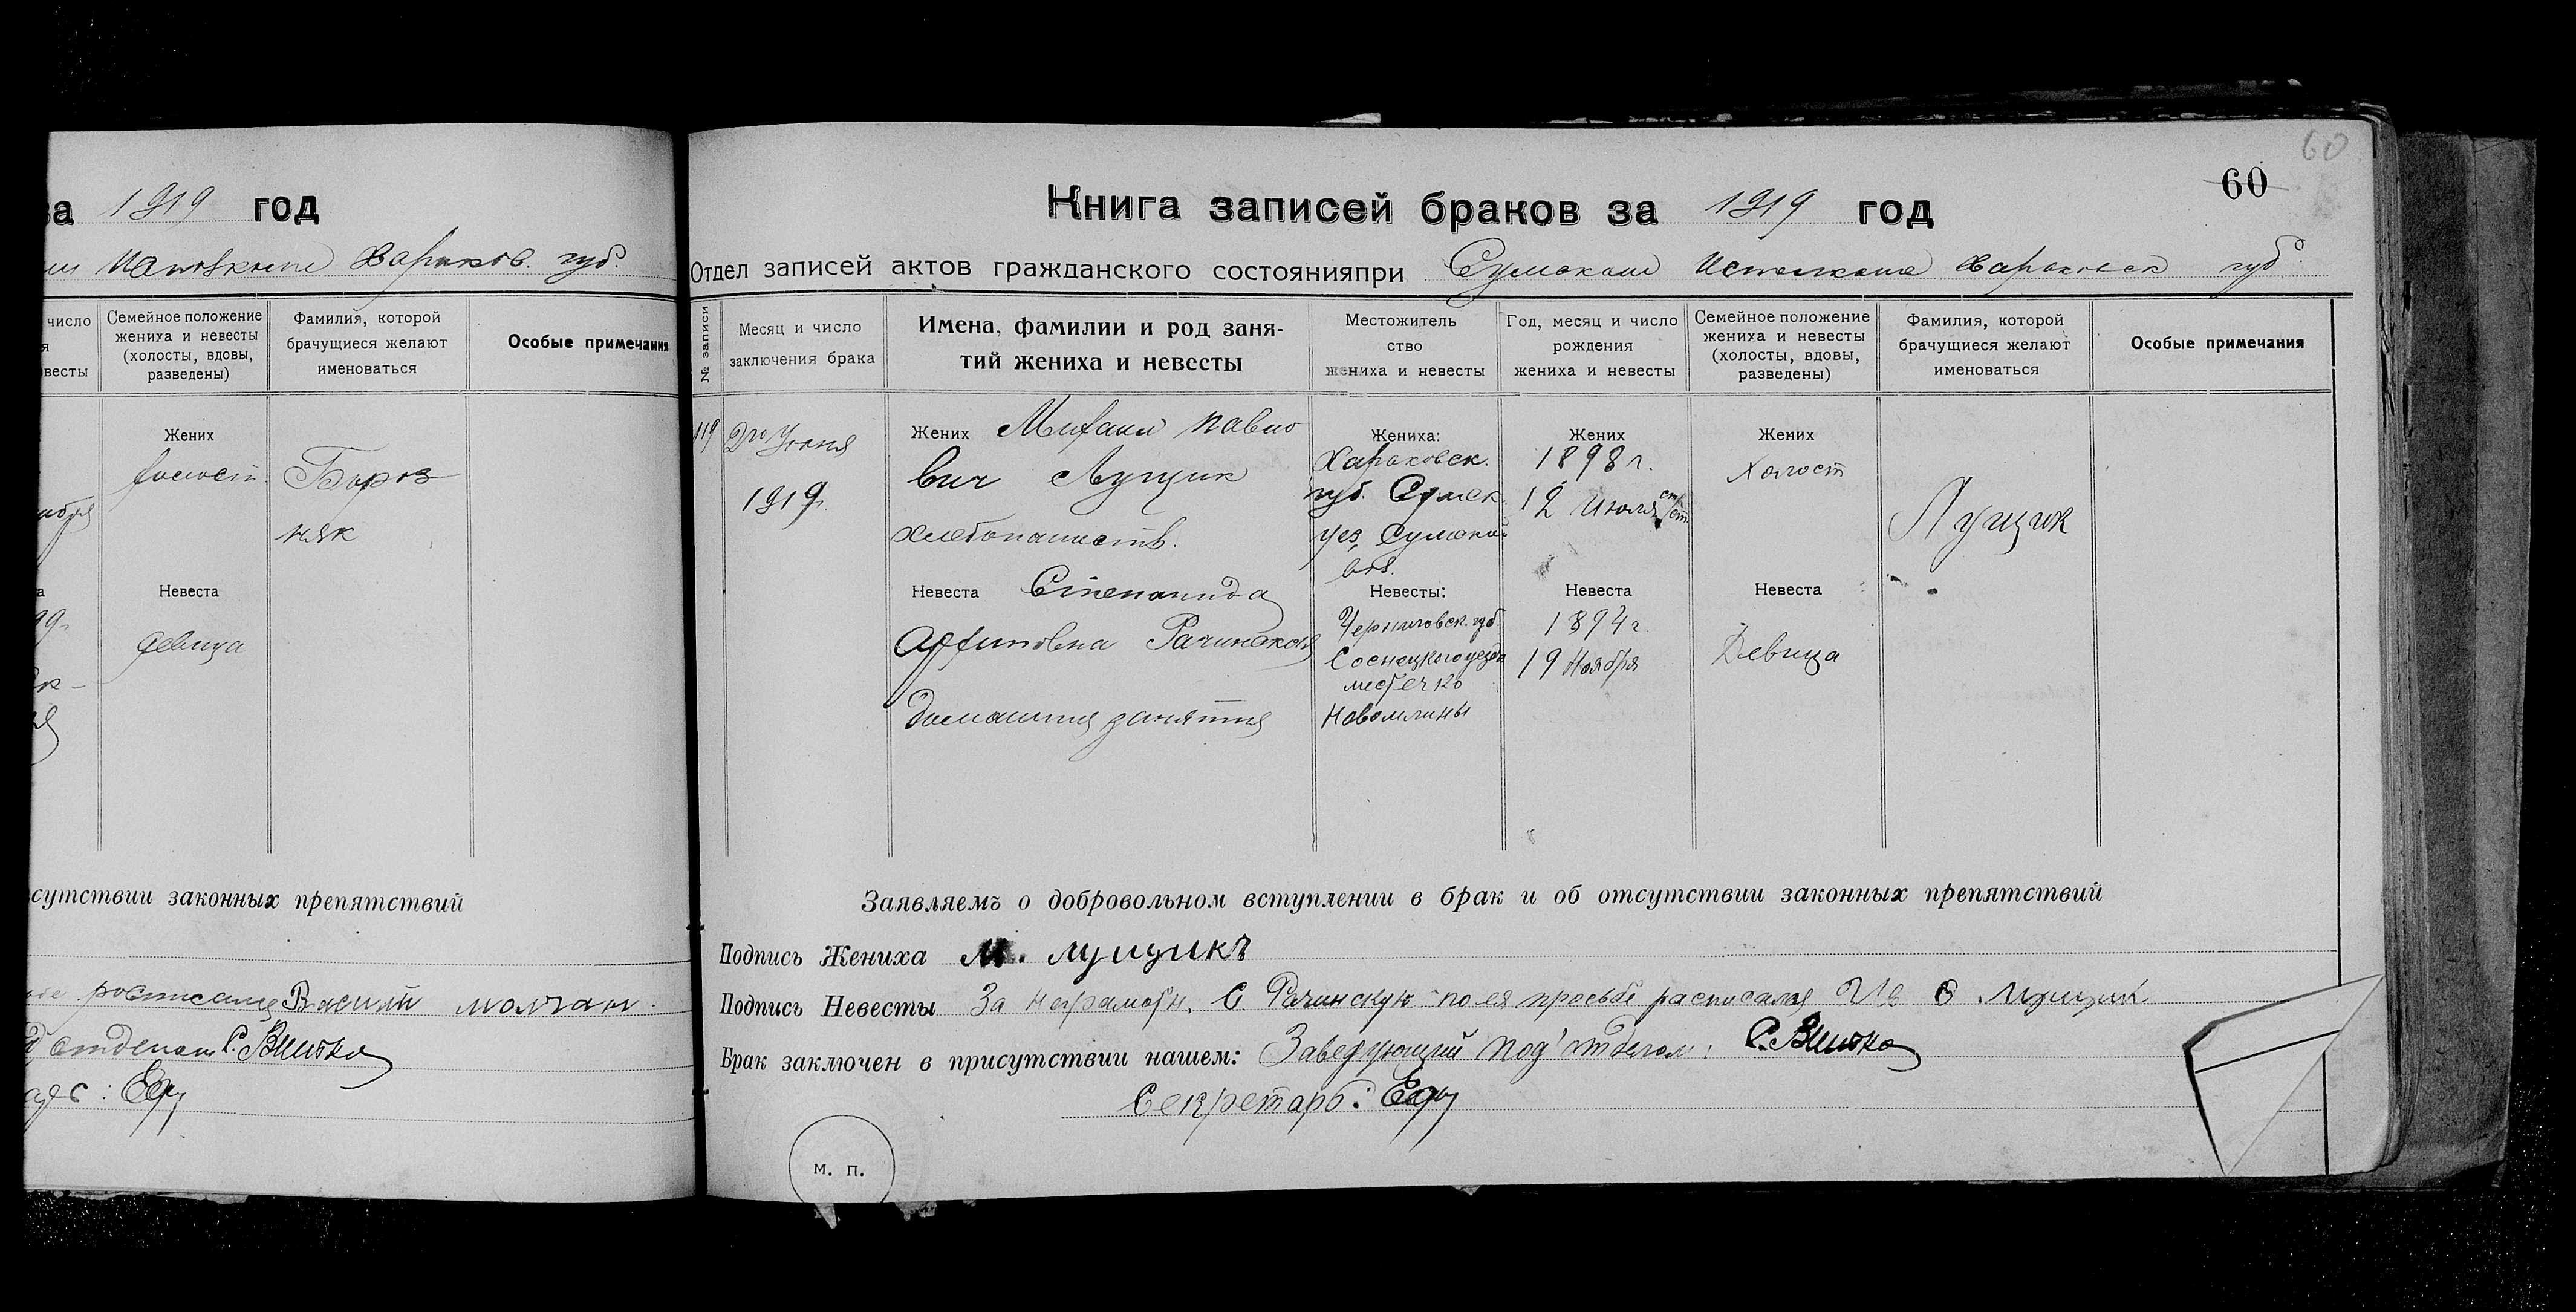 за 1919 год
Исполкоме Харьков. губ.
число
весты
Семейное положение
жениха и невесты
(холосты, вдовы,
разведены)
Фамилия, которой
брачущиеся желают
именоваться
Особые примечания
Жених
холост
Бороз
няк
Невеста
девица
сутствии законных препятствий
Василий Молчан
С. Вшивко
60
60
Книга записей браков за 1919 год
Отдел записей актов гражданского состоянияпри Сумском Исполкоме Харьковск губ.
№ записи
Месяц и число
заключения брака
Имена, фамилии и род заня-
тий жениха и невесты
Местожитель
ство
жениха и невесты
Год, месяц и число
рождения
жениха и невесты
Семейное положение
жениха и невесты
(холосты, вдовы,
разведены)
Фамилия, которой
брачущиеся желают
именоваться
Особые примечания
119
Июня
1919г.
Жених Михаил Павло
вич Лущик
хлебопашеств.
Невеста Степанида
Рачинская
Домашния занятия
Жениха:
Харьковск.
губ. Сумск.
уез, Сумской
вол.
Невесты:
Черниговск. губ.
Соснецкого уезда
местечко
Новомлины
Жених
1898 г.
12 Июля
Невеста
1894 г.
19 Ноября
Жених
Холост
Невеста
Девица
Лущик
Заявляемъ о добровольном вступлении в брак и об отсутствии законных препятствий
Подпись Жениха М. Лущикъ
Подпись Невесты За неграмотн. С Рачинскую по ея просьбе расписался Лущик
Брак заключен в присутствии нашем: Заведующий Под'отделом: С. Вшивко
Секретарь:
м. п.